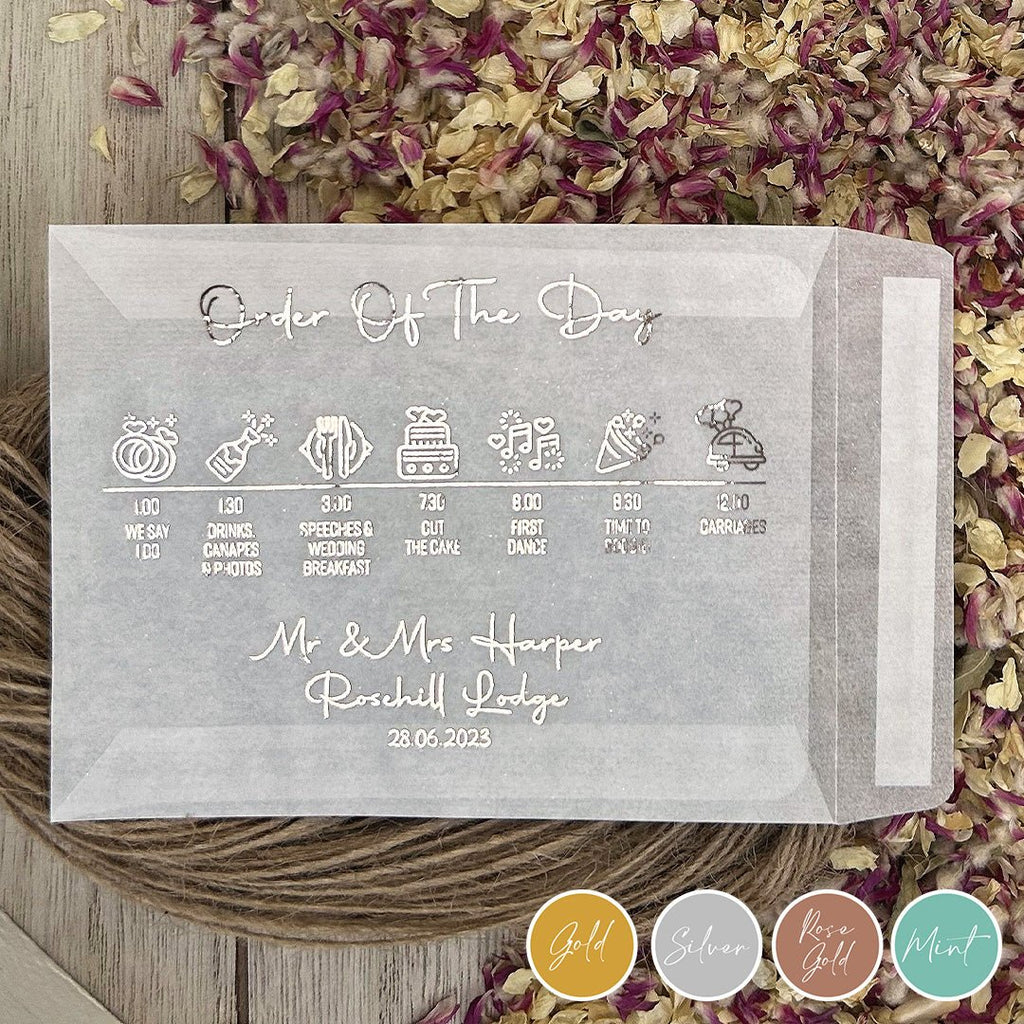 Order Of The Day
1.00
WE SAY
I DO
1.30
DRINKS,
CANAPES
& PHOTOS
3.00
SPEECHES &
WEDDING
BREAKFAST
7.30
CUT
THE CAKE
8.00
FIRST
DANCE
8.30
TIME TO
CARRIAGES
Mr & Mrs Harper
Rosehill Lodge
28.06.2023
Gold
Silver
Rose
Gold
Mint